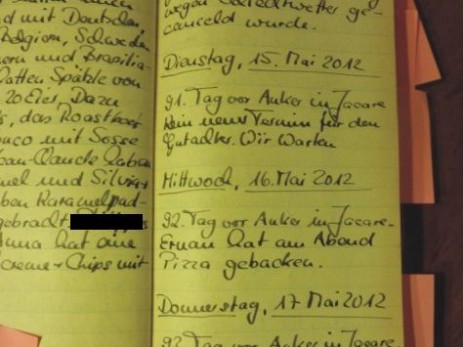 nd mit Deutschen,
Belgien, Schweden
und Brasilia-
hatten Spätzle von
20 Eier. Dazu
das Roastbeef
mit Sosse
Jean-Claude
und Silvia
Karamelpud-
gebracht
Anna hat eine
creme + Chips mit
wegen Schlechtwetter ge-
canceld wurde.
Dienstag, 15. Mai 2012
91. Tag vor Anker in Jacare
Kein neuer Termin für den
Gutachter. Wir Warten
Mittwoch, 16. Mai 2012
92. Tag vor Anker in Jacare.
Erwan hat am Abend
Pizza gebacken.
Donnerstag, 17 Mai 2012
93. Tag vor Anker in Jacare